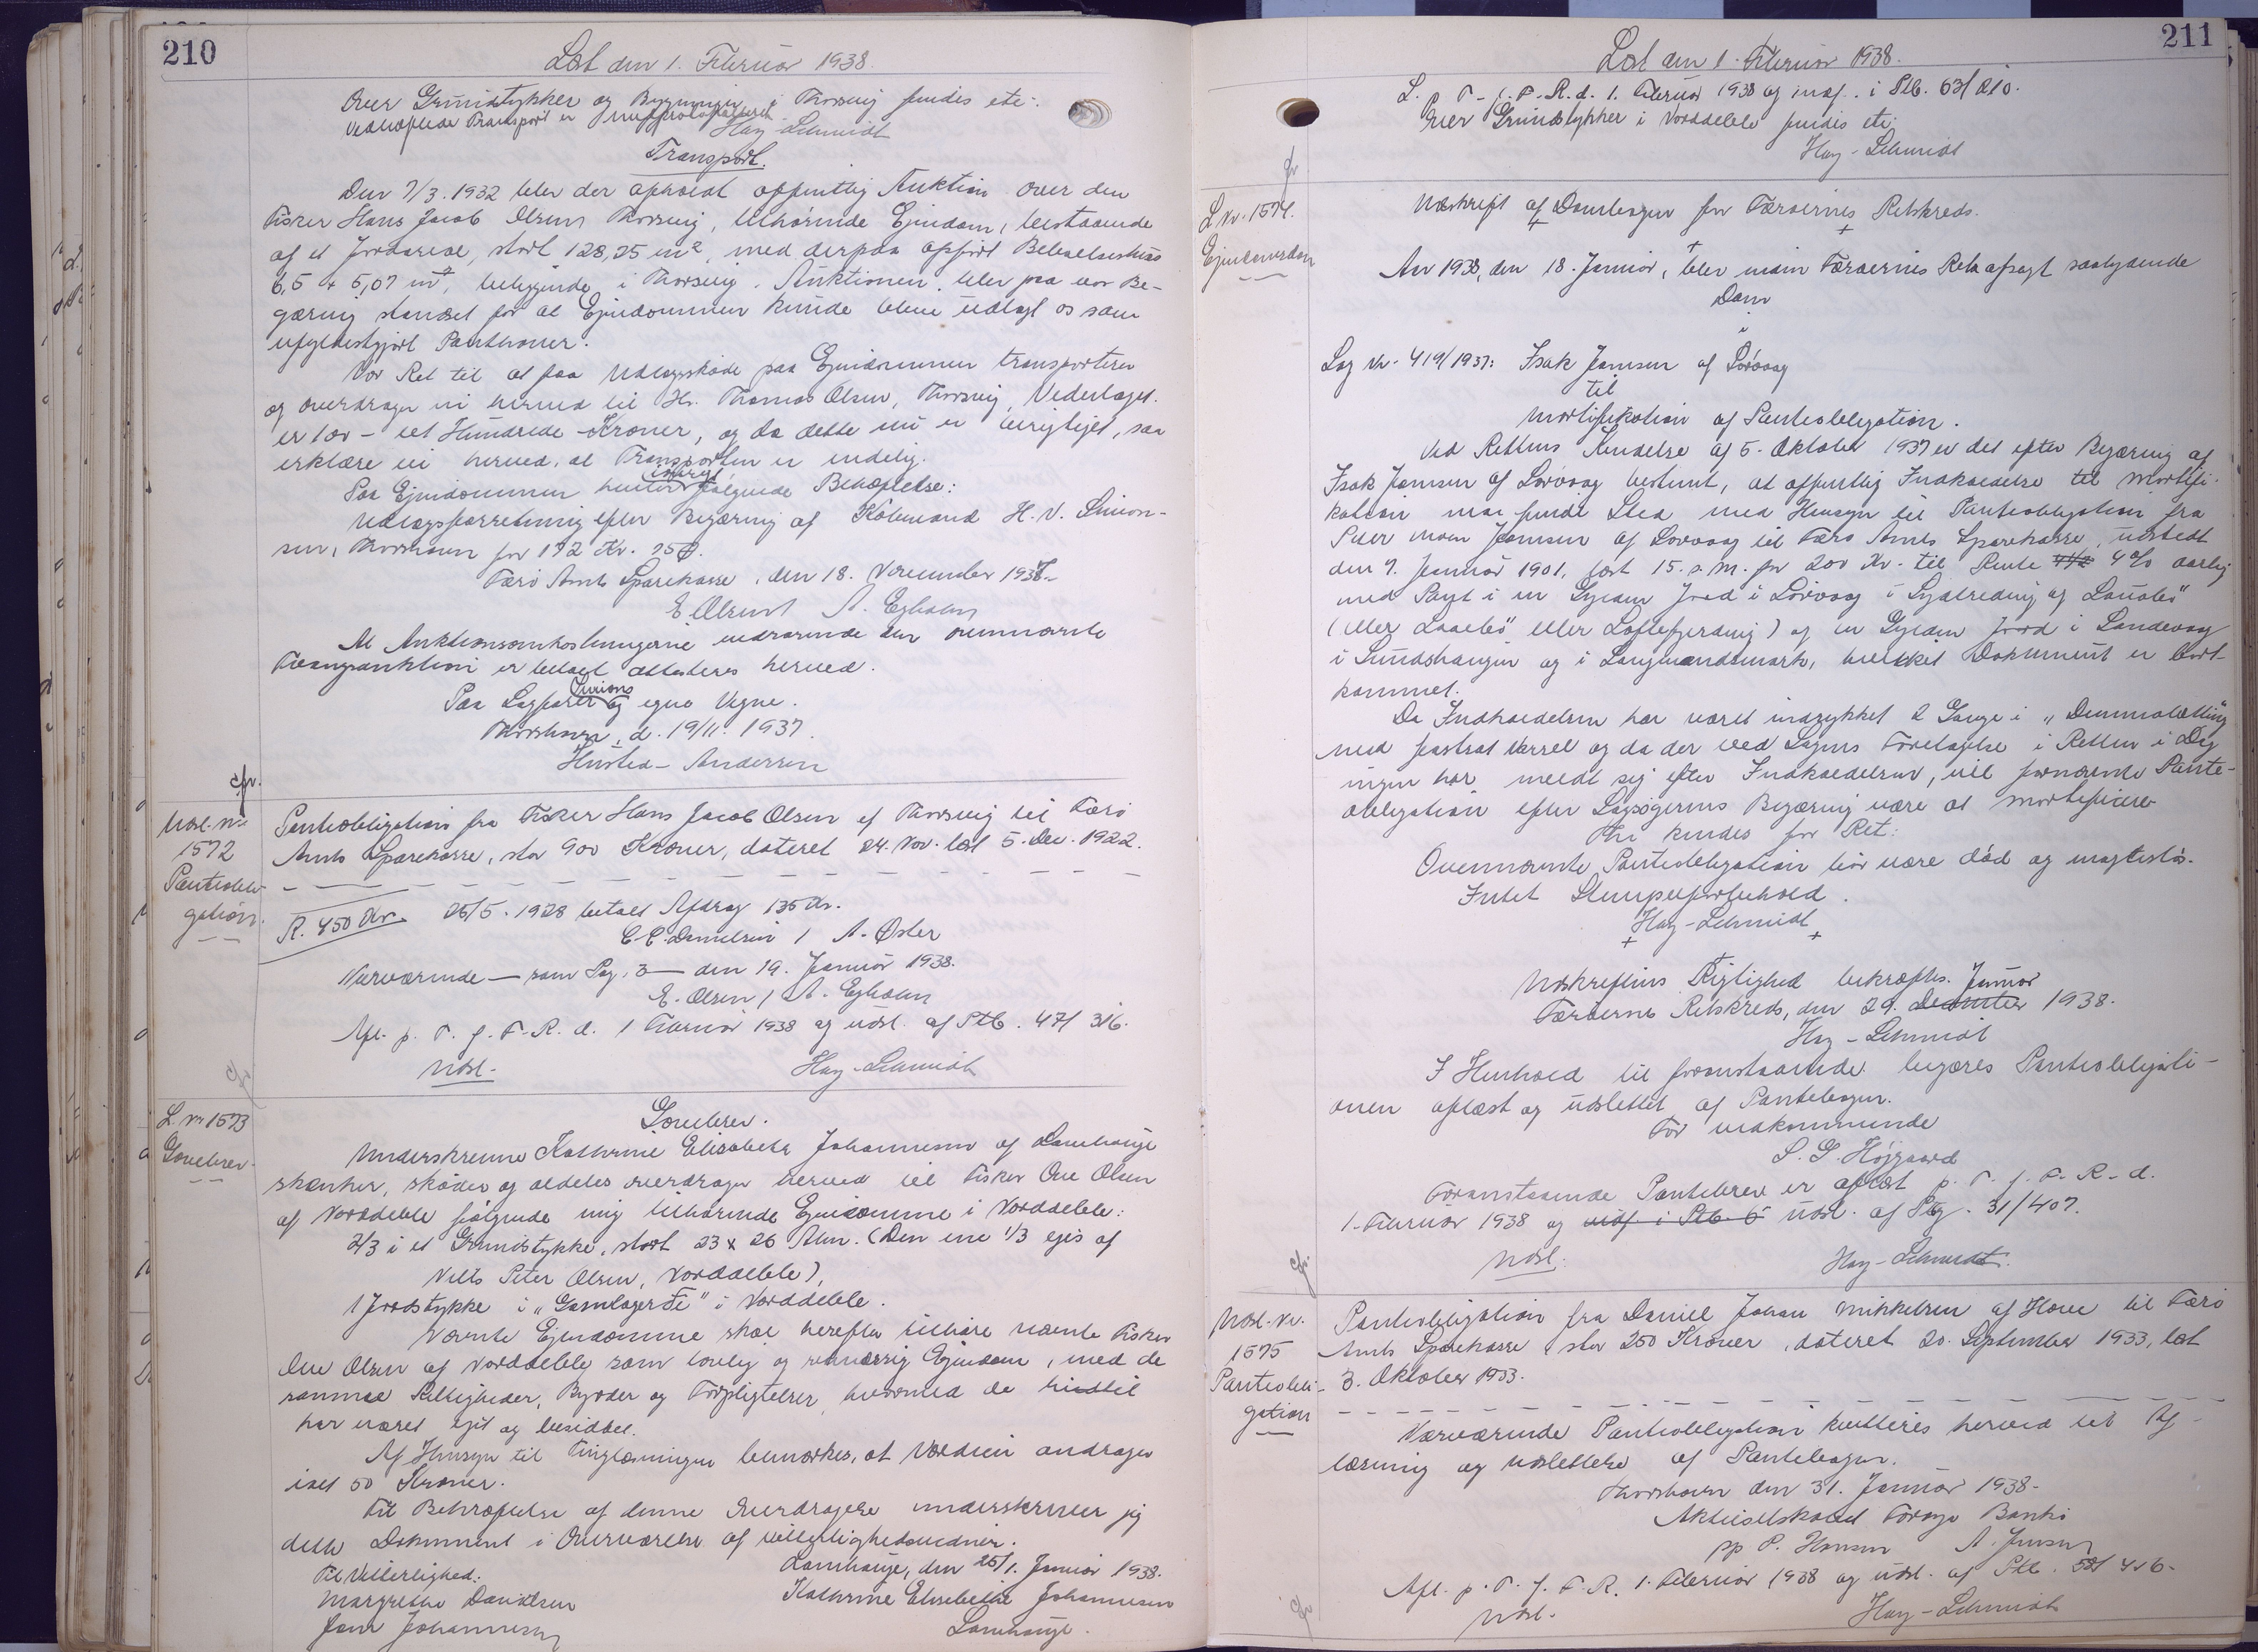 210
Læst den 1. Februar 1938.
Over Grundstykker og Bygninger i Thorsvig findes etc.
Vedhæftede Transport er
Hay-Schmidt
Transport.
Den 7/3. 1932 blev der afholdt offentlig Auktion over den
Fisker Hans Jacob Olsen, Thorsvig, tilhørende Ejendom, bestaaende
af et Jordareal, stort 128,25 m², med derpaa opført Beboelseshus
6,5 x 5,07 m, beliggende i Thorsvig. Auktionen blev paa vor Be-
gæring standset for at Ejendommen kunde blive udlagt os som
ufyldestgjort Panthaver.
Vor Ret til at faa Udlægsskøde paa Ejendommen transporterer
og overdrager vi herved til Hr. Thomas Olsen, Thorsvig. Vederlaget
er 100 - eet Hundrede - Kroner, og da dette nu er berigtiget, saa
erklære vi herved, at Transporten er endelig.
Paa Ejendommen hviler følgende Behæftelse:
Udlægsforretning efter Begæring af Købmand H. N. Simon-
sen, Thorshavn for 172 Kr. 75 Ø.
Færø Amts Sparekasse, den 18. November 1937.
E. Olsen / A. Egholm
At Auktionsomkostningerne vedrørende den ovennævnte
Tvangsauktion er betalt attesteres herved.
Paa Sagfører Simons og egne Vegne.
Thorshavn, d. 19/11. 1937.
Husted-Andersen
cfr.
Udsl. Nr.
1572
Panteobli-
gation.
Panteobligation fra Fisker Hans Jacob Olsen af Thorsvig til Færø
Amts Sparekasse, stor 900 Kroner, dateret 24. Nov. læst 5. Dec. 1922.
R. 450 Kr. 25/5. 1928 betalt Afdrag 135 Kr.
C. C. Danielsen / A. Øster
Nærværende — som Pag. 3 — den 19. Januar 1938.
E. Olsen / A. Egholm
Afl. p. T. f. F. R. d. 1 Februar 1938 og udsl. af Ptb. 47/316.
Udsl.
Hay-Schmidt
cfr
L. Nr 1573
Gavebrev.
Gavebrev.
Underskrevne Kathrine Elisabeth Johannesen af Lamhauge
skænker, skøder og aldeles overdrager herved til Fisker Ove Olsen
af Norddeble følgende mig tilhørende Ejendomme i Norddeble:
2/3 i et Grundstykke, stort 23 x 26 Alen. (Den ene 1/3 ejes af
Niels Peter Olsen, Norddeble),
1 Jordstykke i "Gamlagerði" i Norddeble.
Nævnte Ejendomme skal herefter tilhøre nævnte Fisker
Ove Olsen af Norddeble som lovlig og retmæssig Ejendom, med de
samme Rettigheder, Byrder og Forpligtelser, hvormed de hidtil
har været ejet og besiddet.
Af Hensyn til Tinglæsningen bemærkes, at Værdien andrager
ialt 50 Kroner.
Til Bekræftelse af denne Overdragelse underskriver jeg
dette Dokument i Overværelse af Vitterlighedsvidner.
Lamhauge, den 25/1. Januar 1938.
Til Vitterlighed:
Kathrine Elisabeth Johannesen
Margretha Danielsen
Lamhauge.
Johannesen
211
Læst den 1. Februar 1938.
L. p. T. f. F. R. d. 1. Februar 1938 og indf. i Ptb. 63/210.
Over Grundstykker i Norddeble findes etc.
Hay-Schmidt
cfr
L Nr. 1574.
Ejendomsdom
Udskrift af Dombogen for Færøernes Retskreds.
Aar 1938, den 18. Januar, blev inden Færøernes Ret afsagt saalydende
Dom
i
Sag Nr. 419/1937: Isak Joensen af Lorvig
til
Mortifikation af Panteobligation.
Ved Rettens Kendelse af 5. Oktober 1937 er det efter Begæring af
Isak Joensen af Sørvaag bestemt, at offentlig Indkaldelse til Mortifi-
kation maa finde Sted med Hensyn til Panteobligation fra
Joensen af Sørvaag til Færø Amts Sparekasse, udstedt
den 7. Januar 1901, læst 15. s. M. for 200 Kr. til Rente 4% aarlig
med Pant i en Gylden Jord i Sørvaag i
og en Gylden Jord i Sandevaag
i og i hvilket Dokument er bort-
kommet.
Da Indkaldelsen har været indrykket 2 Gange i "Dimmalætting"
med fastsat Varsel og da der ved Sagens Foretagelse i Retten i Dag
ingen har meldt sig efter Indkaldelsen, vil fornævnte Pante-
obligation efter Sagsøgerens Begæring være at mortificere.
Thi kendes for Ret:
Ovennævnte Panteobligation bør være død og magtesløs.
Intet Stempelforbehold.
Hay-Schmidt
Udskriftens Rigtighed bekræftes.
Januar
Færøernes Retskreds, den 29. December 1938.
Hay-Schmidt
I Henhold til foranstaaende begæres Panteobligati-
onen aflæst og udslettet af Pantebogen.
For vedkommende
S. G. Højgaard
Foranstaaende Pantebrev er aflæst p. T. f. F. R. d.
1. Februar 1938 og indf i Ptb. 6 udsl. af Ptg. 31/407.
Udsl.
Hay-Schmidt.
cfr.
Udsl. Nr.
1575
Panteobli-
gation
Panteobligation fra Daniel Johan Mikkelsen af Hove til Færø
Amts Sparekasse stor 250 Kroner, dateret 20. September 1933, læst
3. Oktober 1933.
Nærværende Panteobligation kvitteres herved til Af-
læsning og Udslettelse af Pantebogen.
Thorshavn den 31. Januar 1938.
Aktieselskabet Føroya Banki
pp P. Hansen A. Jensen
Afl. p. T. f. F. R. 1. Februar 1938 og udsl. af Ptb. 58/416.
Udsl.
Hay-Schmidt
cfr